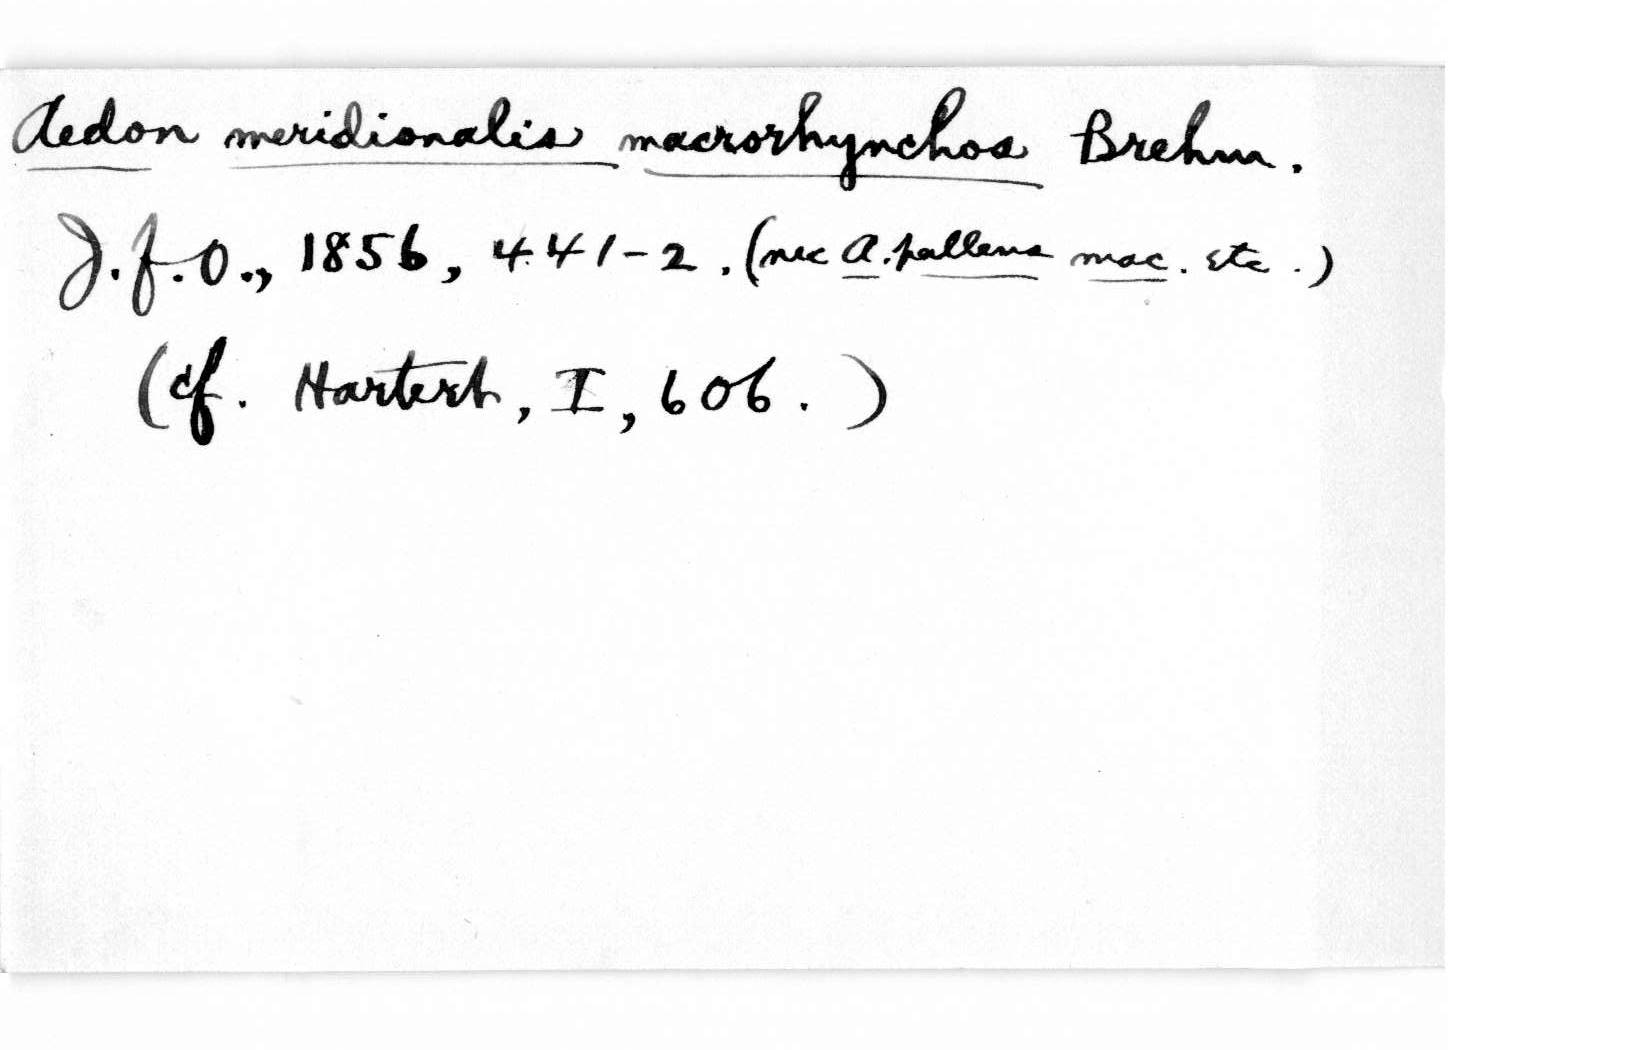 Aedon meridionalis macrorhynchos Brehm.
J.f.O., 1856, 441-2. (nec A. pallens mac. etc.)
(cf. Hartert, I, 606.)